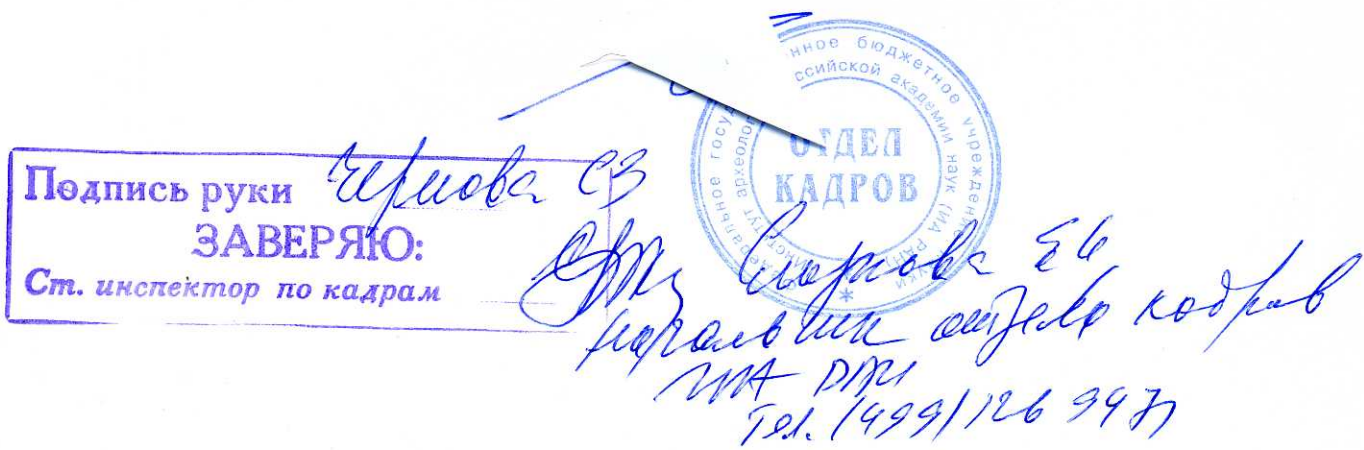 нное бюджетное учреждение науки
ссийской академии наук (ИА РАН)
ОТДЕЛ
КАДРОВ
Подпись руки Чернова СЗ
ЗАВЕРЯЮ:
Ст. инспектор по кадрам
начальник отдела кадров
ИА РАН
Тел. (499) 126 94